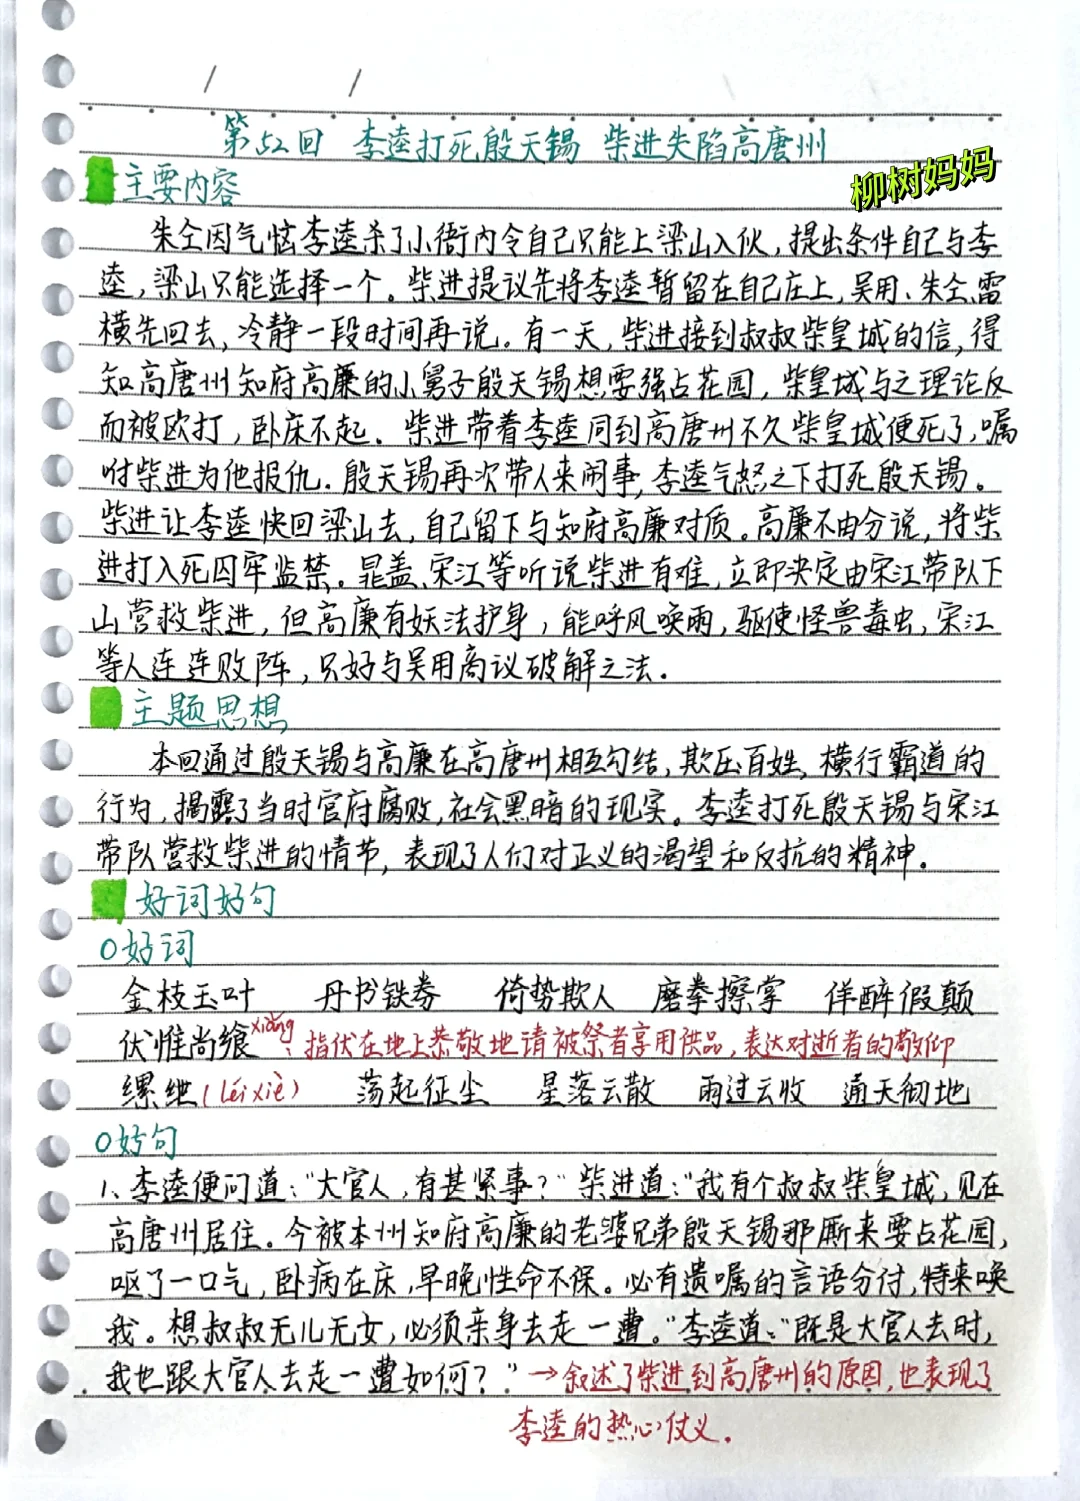 第52回 李逵打死殷天锡 柴进失陷高唐州
柳树妈妈
主要内容
朱仝因气恼李逵杀了小衙内令自己只能上梁山入伙,提出条件自己与李
逵,梁山只能选择一个。柴进提议先将李逵暂留在自己庄上,吴用、朱仝、雷
横先回去,冷静一段时间再说。有一天,柴进接到叔叔柴皇城的信,得
知高唐州知府高廉的小舅子殷天锡想要强占花园,柴皇城与之理论反
而被欧打,卧床不起.柴进带着李逵同到高唐州不久柴皇城便死了,嘱
咐柴进为他报仇.殷天锡再次带人来闹事,李逵气怒之下打死殷天锡。
柴进让李逵快回梁山去,自己留下与知府高廉对质。高廉不由分说,将柴
进打入死囚牢监禁。晁盖、宋江等听说柴进有难,立即决定由宋江带队下
山营救柴进,但高廉有妖法护身,能呼风唤雨,驱使怪兽毒虫,宋江
等人连连败阵,只好与吴用商议破解之法.
主题思想
本回通过殷天锡与高廉在高唐州相互勾结,欺压百姓,横行霸道的
行为,揭露了当时官府腐败,社会黑暗的现实。李逵打死殷天锡与宋江
带队营救柴进的情节,表现了人们对正义的渴望和反抗的精神.
好词好句
○好词
金枝玉叶 丹书铁券 倚势欺人 磨拳擦掌 佯醉假颠
伏惟尚飨xiǎng:指伏在地上恭敬地请被祭者享用供品,表达对逝者的敬仰
缧绁(Léi xiè) 荡起征尘 星落云散 雨过云收 通天彻地
○好句
1、李逵便问道:"大官人,有甚紧事?"柴进道:"我有个叔叔柴皇城,见在
高唐州居住。今被本州知府高廉的老婆兄弟殷天锡那厮来要占花园,
呕了一口气,卧病在床,早晚性命不保。必有遗嘱的言语分付,特来唤
我。想叔叔无儿无女,必须亲身去走一遭。"李逵道:"既是大官人去时,
我也跟大官人去走一遭如何?"→叙述了柴进到高唐州的原因,也表现了
李逵的热心仗义.